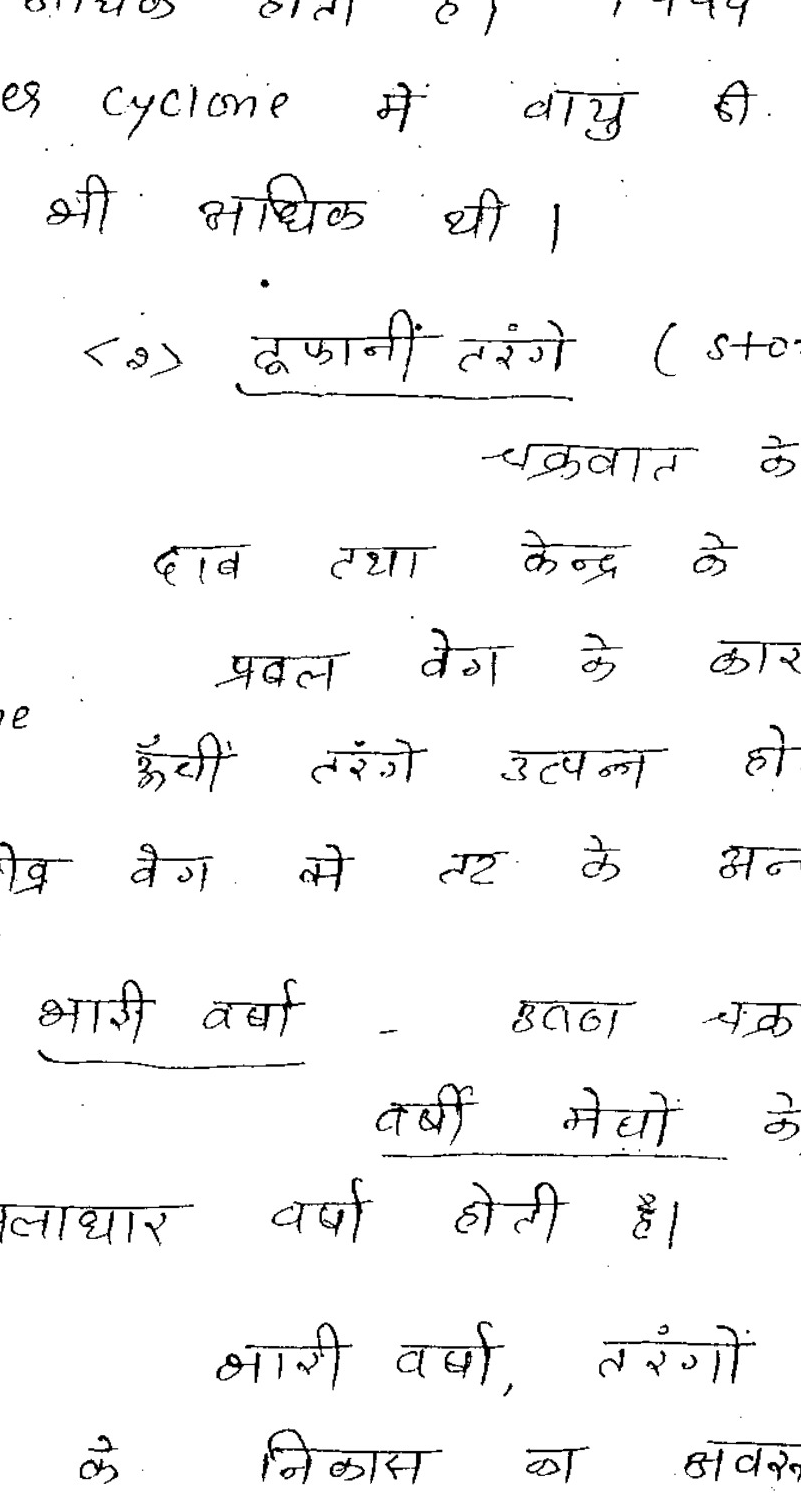 अधिक होता है। 1999
es cyclone में वायु की
भी अधिक थी।
<२> तूफानीं तरंगे ( sto
चक्रवात के
दाब तथा केन्द्र के
प्रबल वेग के कार
e
ऊँचीं तरंगे उत्पन्न हो
वेग से तट के अन
भारी वर्षा - उतण चक्र
वर्षी मेघों के
लाधार वर्षा होती है।
भारी वर्षा, तरंगों
के निकास का अवरु